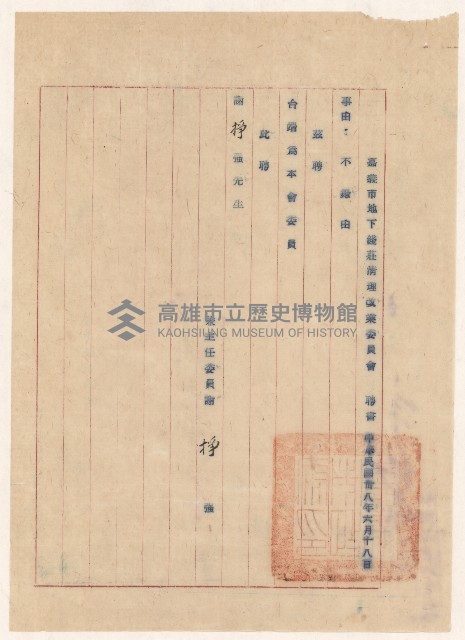 嘉義市地下錢莊清理改業委員會 聘書 中華民國卅八年六月十八日
事由：不錄由
茲聘
台端為本會委員
此聘
謝掙強先生
主任委員謝 掙 強
高雄市立歷史博物館
KAOHSIUNG MUSEUM OF HISTORY